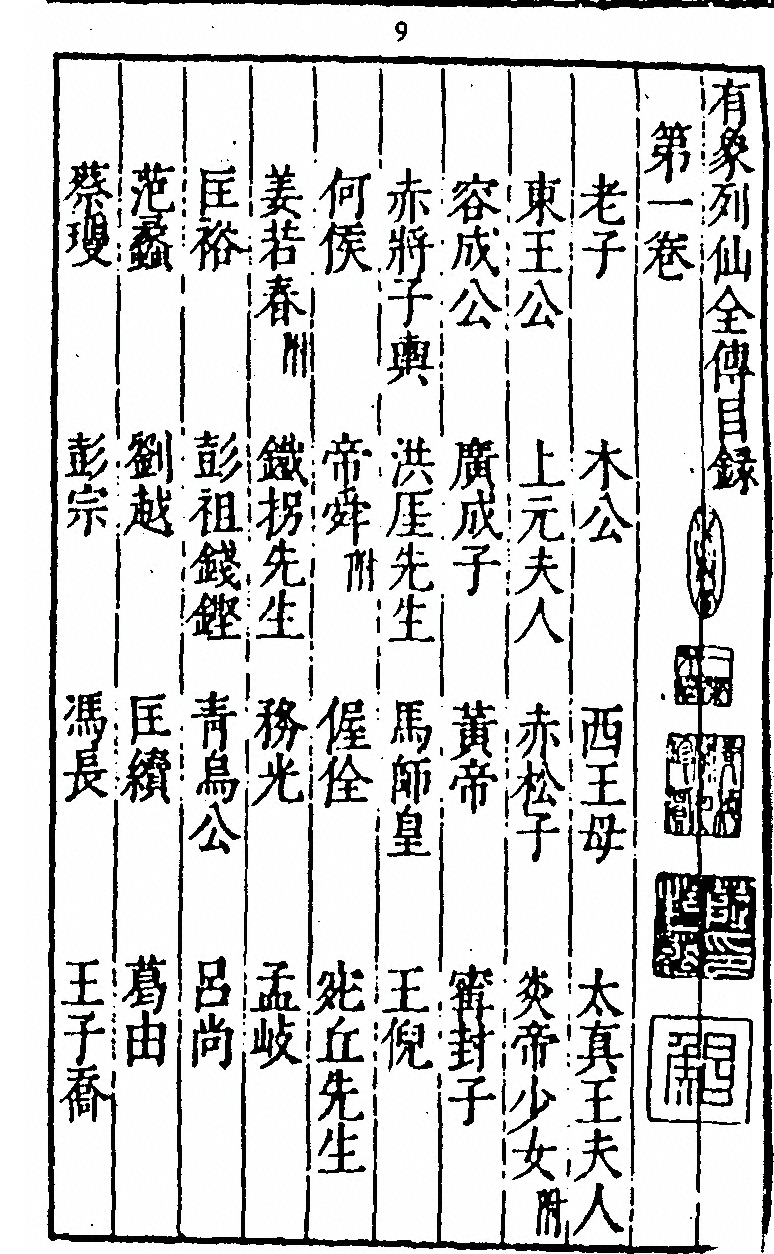 9
有象列仙全傳目録
第一卷
老子 木公 西王母 太真王夫人
東王公 上元夫人 赤松子 炎帝少女附
容成公 廣成子 黃帝 甯封子
赤將子輿 洪厓先生 馬師皇 王倪
何侯 帝舜附 偓佺 宛丘先生
姜若春附 鐵拐先生 務光 孟岐
匡裕 彭祖錢鏗 青烏公 呂尚
范蠡 劉越 匡續 葛由
蔡瓊 彭宗 馮長 王子喬